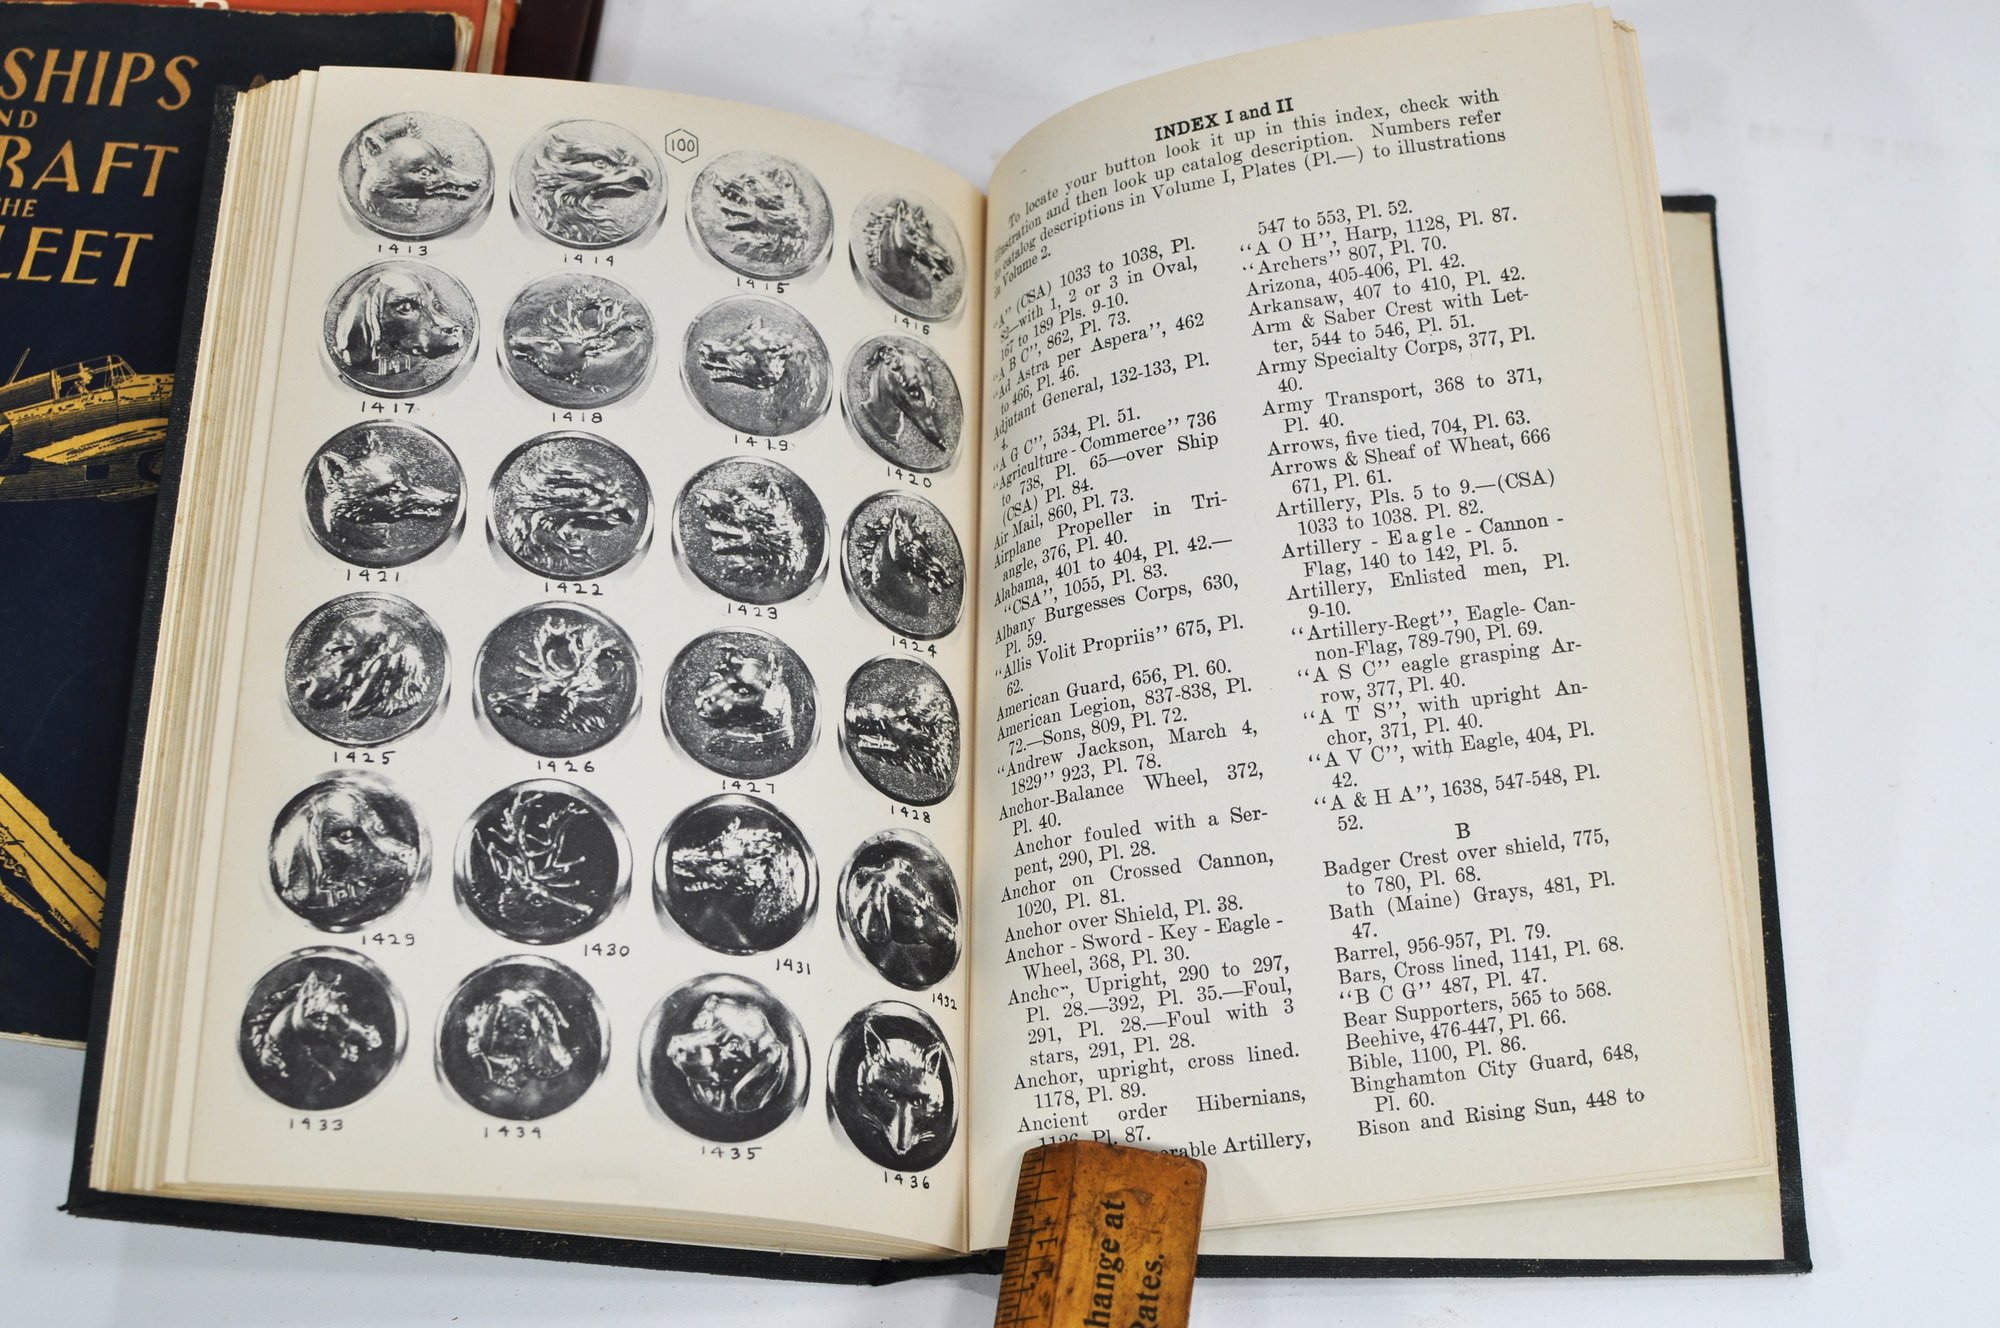 SHIPS
ND
RAFT
HE
LEET
100
1413
1414
1415
1416
1417
1418
1419
1420
1421
1422
1423
1424
1425
1426
1427
1428
1429
1430
1431
1432
1433
1434
1435
1436
INDEX I and II
To locate your button look it up in this index, check with
illustration and then look up catalog description. Numbers refer
to catalog descriptions in Volume I, Plates (Pl.—) to illustrations
in Volume 2.
"A" (CSA) 1033 to 1038, Pl.
82—with 1, 2 or 3 in Oval,
167 to 189 Pls. 9-10.
"A B C", 862, Pl. 73.
"Ad Astra per Aspera", 462
to 466, Pl. 46.
Adjutant General, 132-133, Pl.
4.
"A G C", 534, Pl. 51.
"Agriculture - Commerce" 736
to 738, Pl. 65—over Ship
(CSA) Pl. 84.
Air Mail, 860, Pl. 73.
Airplane Propeller in Tri-
angle, 376, Pl. 40.
Alabama, 401 to 404, Pl. 42.—
"CSA", 1055, Pl. 83.
Albany Burgesses Corps, 630,
Pl. 59.
"Allis Volit Propriis" 675, Pl.
62.
American Guard, 656, Pl. 60.
American Legion, 837-838, Pl.
72.—Sons, 809, Pl. 72.
"Andrew Jackson, March 4,
1829" 923, Pl. 78.
Anchor-Balance Wheel, 372,
Pl. 40.
Anchor fouled with a Ser-
pent, 290, Pl. 28.
Anchor on Crossed Cannon,
1020, Pl. 81.
Anchor over Shield, Pl. 38.
Anchor - Sword - Key - Eagle -
Wheel, 368, Pl. 30.
Anchor, Upright, 290 to 297,
Pl. 28.—392, Pl. 35.—Foul,
291, Pl. 28.—Foul with 3
stars, 291, Pl. 28.
Anchor, upright, cross lined.
1178, Pl. 89.
Ancient order Hibernians,
1126, Pl. 87.
rable Artillery,
547 to 553, Pl. 52.
"A O H", Harp, 1128, Pl. 87.
"Archers" 807, Pl. 70.
Arizona, 405-406, Pl. 42.
Arkansaw, 407 to 410, Pl. 42.
Arm & Saber Crest with Let-
ter, 544 to 546, Pl. 51.
Army Specialty Corps, 377, Pl.
40.
Army Transport, 368 to 371,
Pl. 40.
Arrows, five tied, 704, Pl. 63.
Arrows & Sheaf of Wheat, 666
671, Pl. 61.
Artillery, Pls. 5 to 9.—(CSA)
1033 to 1038. Pl. 82.
Artillery - Eagle - Cannon -
Flag, 140 to 142, Pl. 5.
Artillery, Enlisted men, Pl.
9-10.
"Artillery-Regt", Eagle- Can-
non-Flag, 789-790, Pl. 69.
"A S C" eagle grasping Ar-
row, 377, Pl. 40.
"A T S", with upright An-
chor, 371, Pl. 40.
"A V C", with Eagle, 404, Pl.
42.
"A & H A", 1638, 547-548, Pl.
52.
B
Badger Crest over shield, 775,
to 780, Pl. 68.
Bath (Maine) Grays, 481, Pl.
47.
Barrel, 956-957, Pl. 79.
Bars, Cross lined, 1141, Pl. 68.
"B C G" 487, Pl. 47.
Bear Supporters, 565 to 568.
Beehive, 476-447, Pl. 66.
Bible, 1100, Pl. 86.
Binghamton City Guard, 648,
Pl. 60.
Bison and Rising Sun, 448 to
hange at
ates.